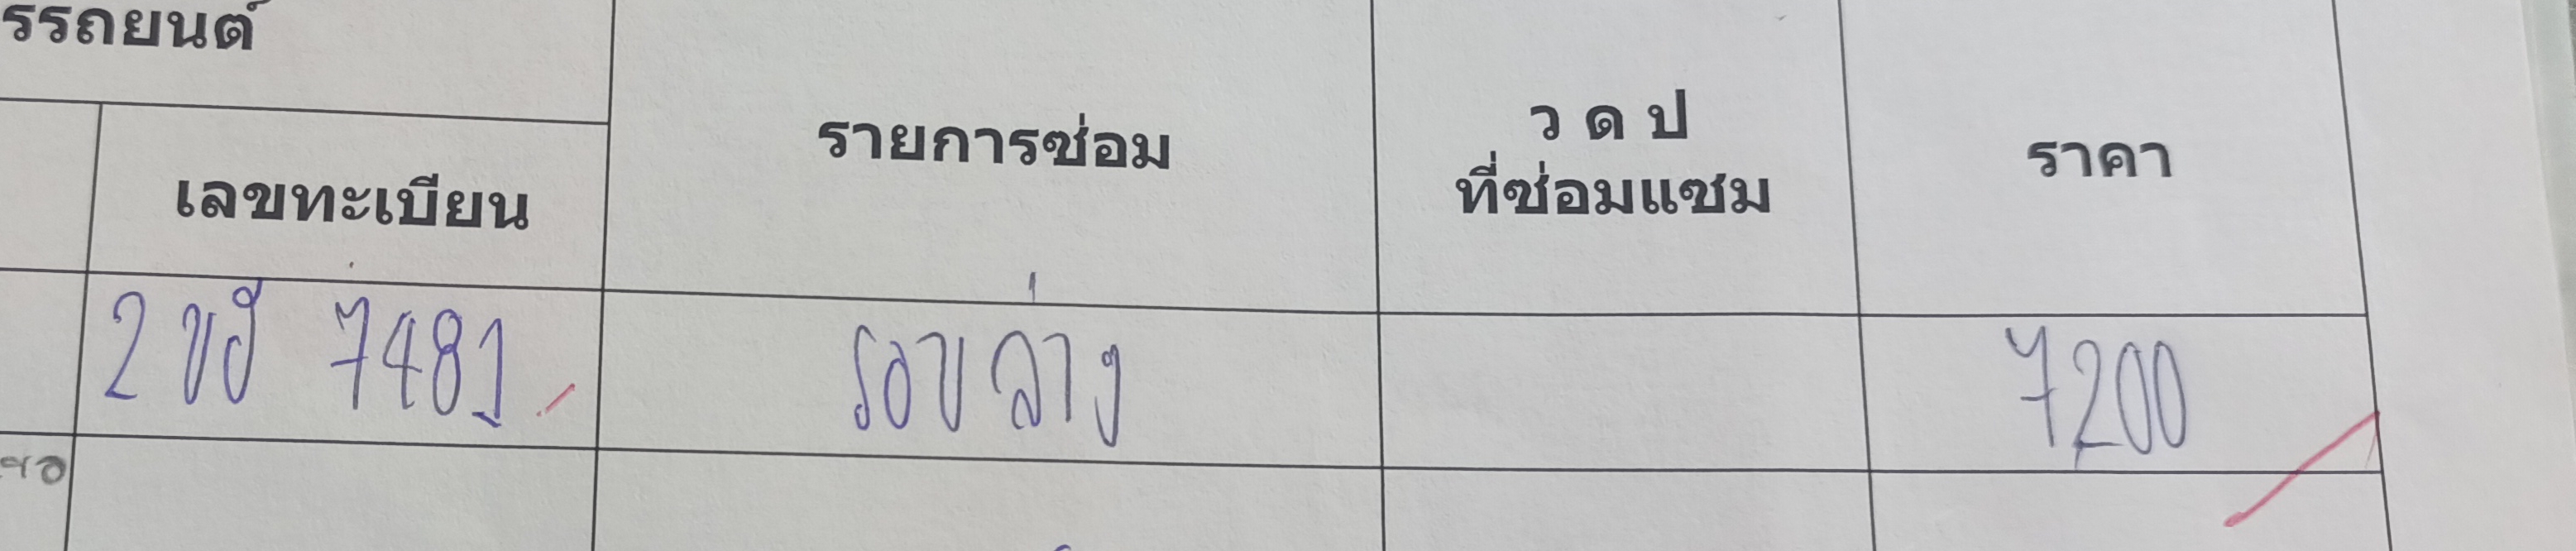 รรถยนต์
เลขทะเบียน
รายการซ่อม
ว ด ป
ที่ซ่อมแซม
ราคา
2 7481
7200